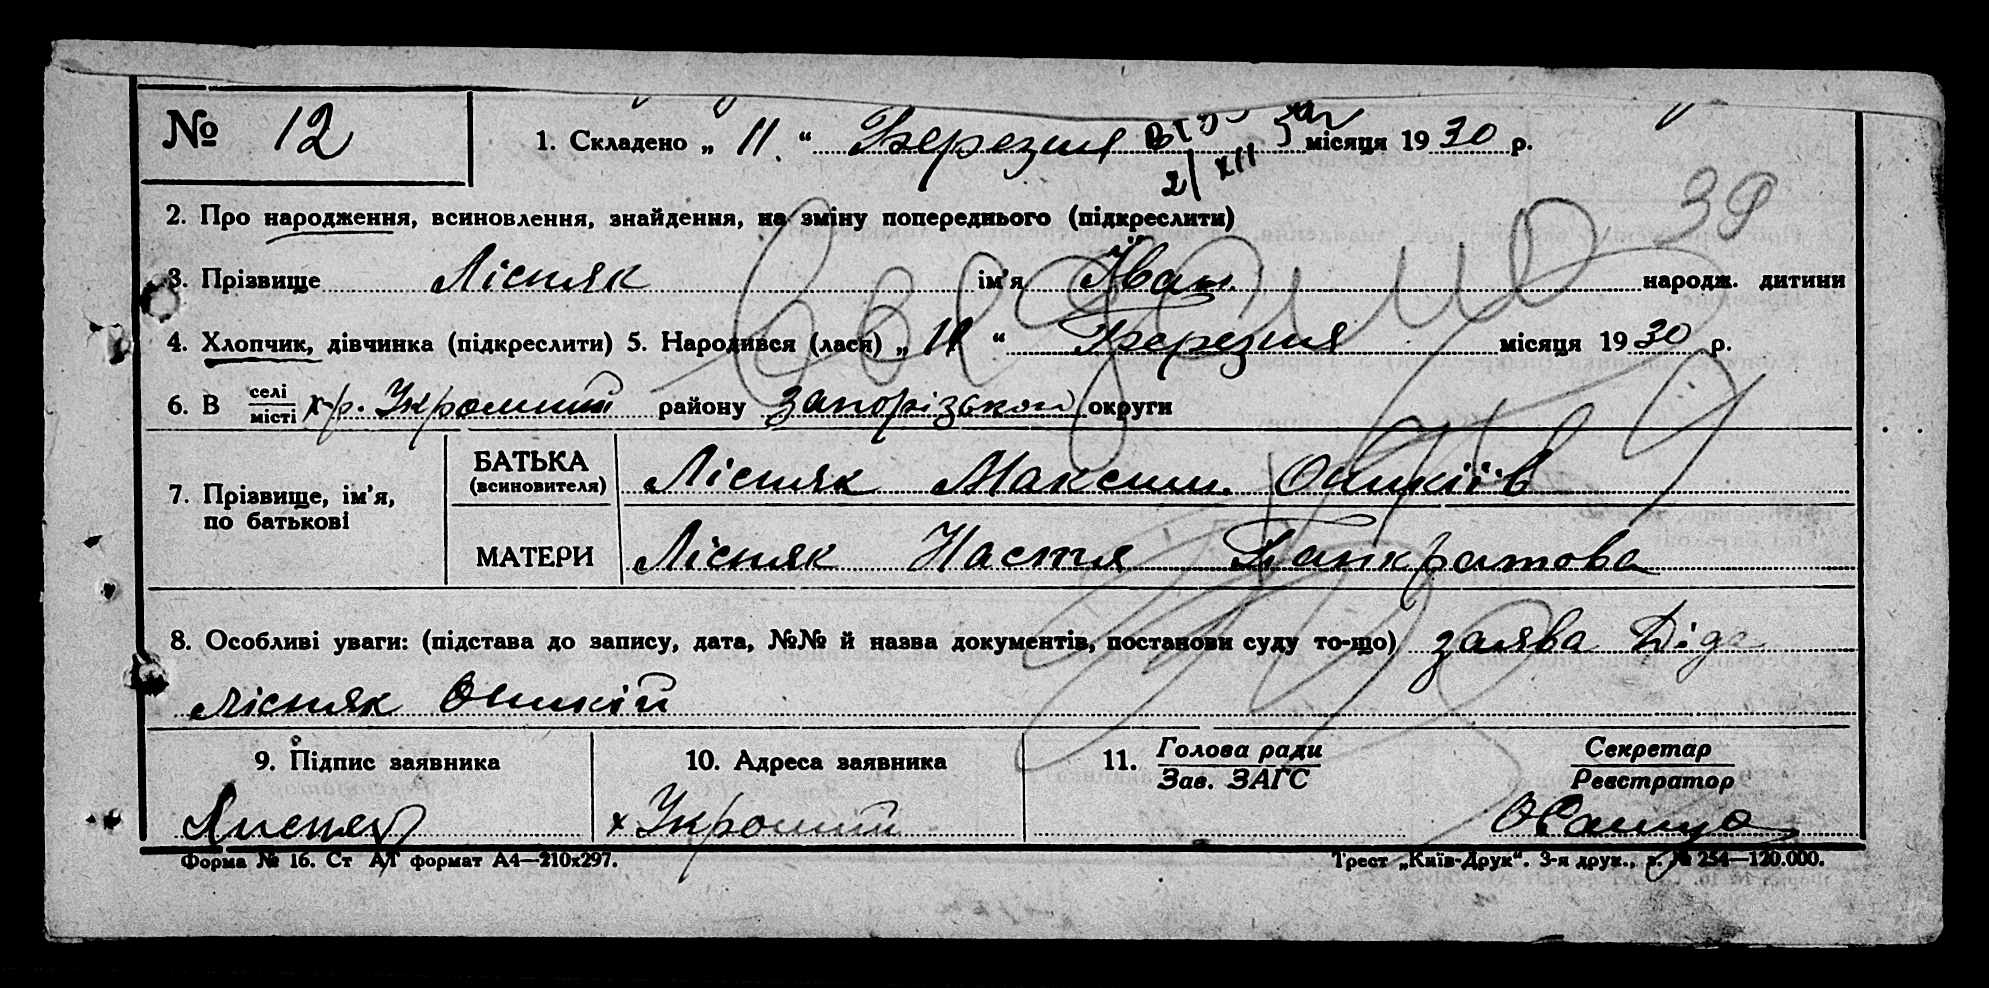 № 12
1. Складено „ 11. “ Березня місяця 1930 р.
2/XII
39
2. Про народження, всиновлення, знайдення, на зміну попереднього (підкреслити)
3. Прізвище Лісняк ім'я Іван народж. дитини
4. Хлопчик, дівчинка (підкреслити) 5. Народився (лася) „ 11 “ Березня місяця 1930 р.
6. В селі/місті х-р. Укромний району Запорізької округи
7. Прізвище, ім'я, по батькові
БАТЬКА (всиновителя) Лісняк Максим.
МАТЕРИ Лісняк Настя Панкратова
8. Особливі уваги: (підстава до запису, дата, №№ й назва документів, постанови суду то-що) заява Діда
Лісняк
9. Підпис заявника
10. Адреса заявника
11. Голова ради/Зав. ЗАГС
Секретар/Реєстратор
Лисняк
х Укромний
Форма № 16. Ст АґТ формат А4—210х297.
Трест „Київ-Друк“. 3-я друк., з. № 254—120.000.